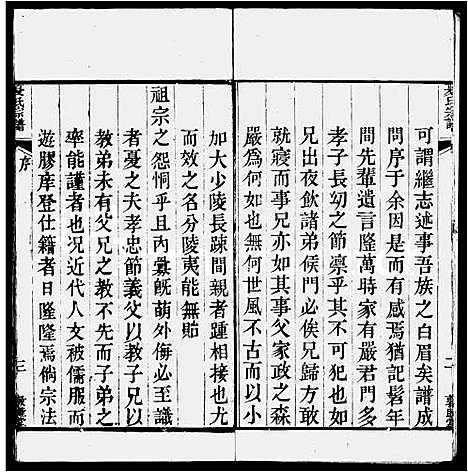 可謂繼志述事吾族之白眉矣譜成
問序于余因是有感焉猶記髫年
問先輩遺言隆萬時家有嚴君門多
孝子長幼之節凛乎其不可犯也如
兄出夜飲諸弟候門必俟兄歸方敢
就寢而事兄亦如其事父家政之森
嚴爲何如也無何世風不古或以小
加大少陵長疎間親者踵相接也尤
而效之名分陵夷能無貽
祖宗之怨恫乎且內釁既萌外侮必至識
者憂之夫孝忠節義父以教子兄以
教弟未有父兄之教不先而子弟之
率能謹者也况近代人文被儒服而
遊膠庠登仕籍者日隆隆焉倘宗法
氏宗譜
序
二
三